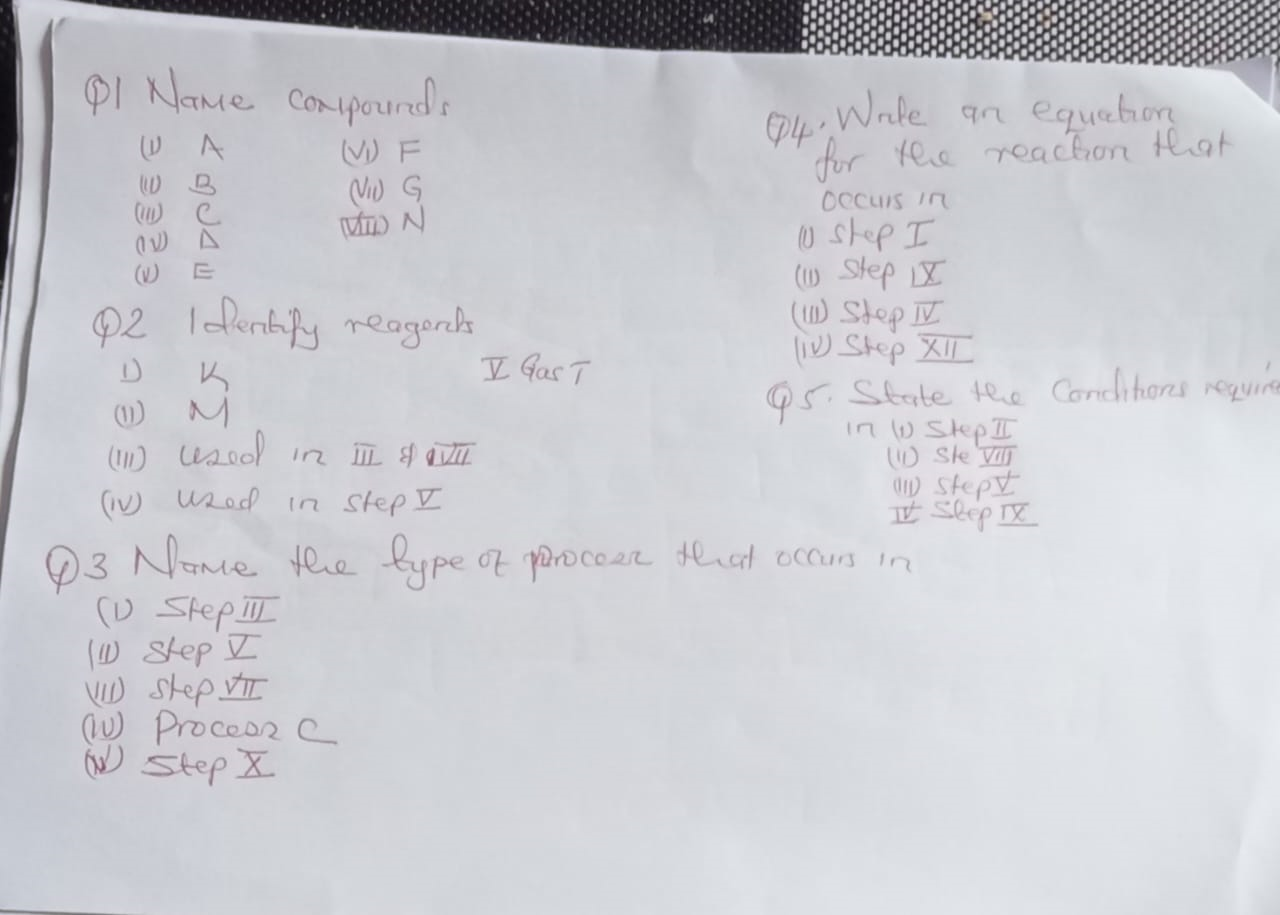 Q1 Name compounds
(i) A
(ii) B
(iii) C
(iv) D
(v) E
(vi) F
(vii) G
(viii) N
Q2 Identify reagents
i) K
(ii) M
(iii) used in III & VII
(iv) used in step V
V Gas T
Q3 Name the type of process that occurs in
(i) Step III
(ii) Step V
(iii) Step VII
(iv) Process C
(v) Step X
Q4. Write an equation
for the reaction that
occurs in
(i) Step I
(ii) Step IX
(iii) Step IV
(iv) Step XII
Q5. State the Conditions require
in (i) Step II
(ii) Ste VIII
(iii) Step V
IV Step IX